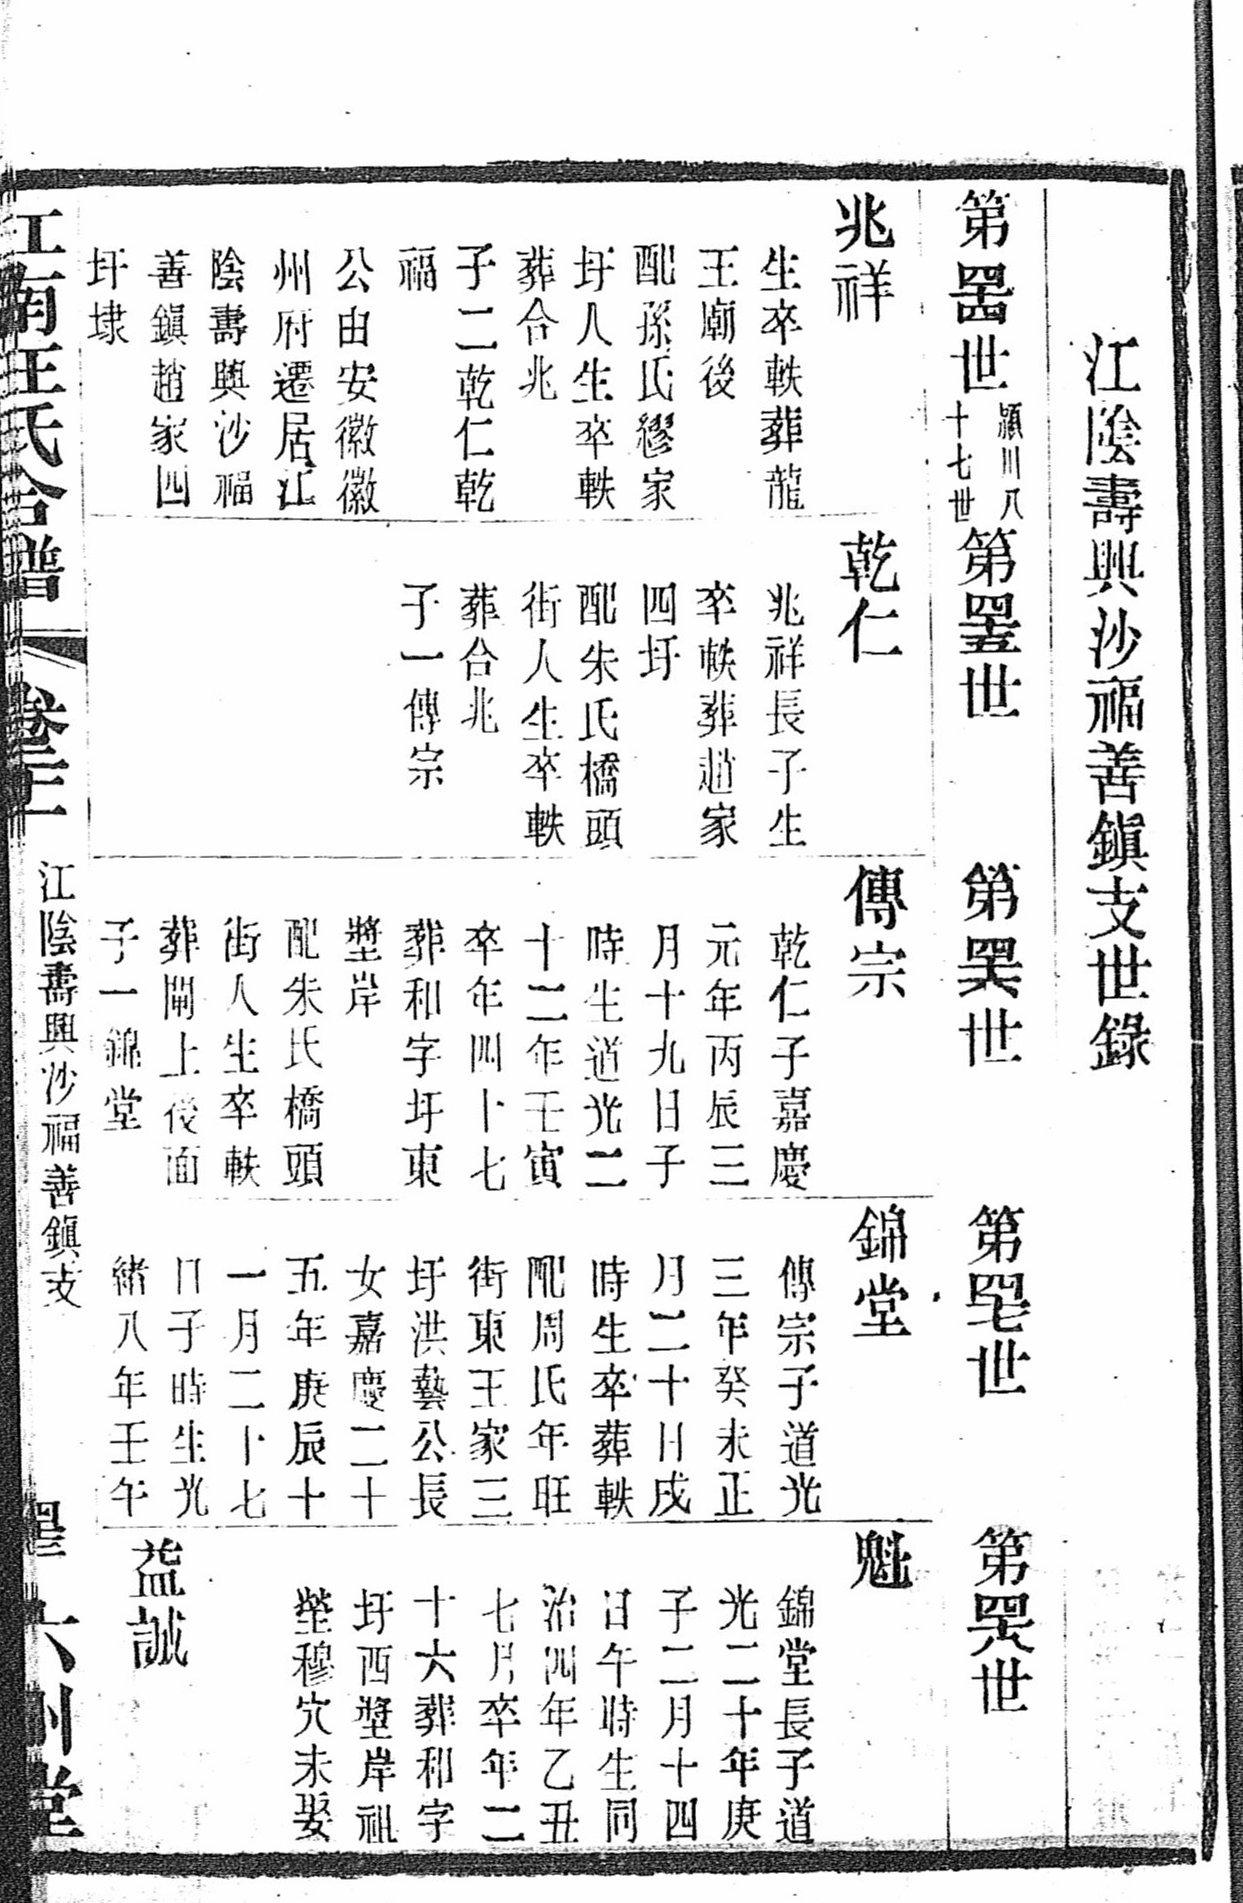 江陰壽興沙福善鎮支世錄
第四十四世
潁川八
十七世
第四十五世
第四十六世
第四十七世
第四十八世
兆祥
生卒軼葬龍
王廟後
配孫氏繆家
圩人生卒軼
葬合兆
子二乾仁乾
福
公由安徽徽
州府遷居江
陰壽興沙福
善鎮趙家四
圩埭
乾仁
兆祥長子生
卒軼葬趙家
四圩
配朱氏橋頭
街人生卒軼
葬合兆
子一傳宗
傳宗
乾仁子嘉慶
元年丙辰三
月十九日子
時生道光二
十二年壬寅
卒年四十七
葬和字圩東
㙩岸
配朱氏橋頭
街人生卒軼
葬閘上後面
子一錦堂
錦堂
傳宗子道光
三年癸未正
月二十日戌
時生卒葬軼
配周氏年旺
街東王家三
圩洪藝公長
女嘉慶二十
五年庚辰十
一月二十七
日子時生光
緒八年壬午
魁
錦堂長子道
光二十年庚
子二月十四
日午時生同
治四年乙丑
七月卒年二
十六葬和字
圩西㙩岸祖
塋穆穴未娶
益誠
江南汪氏合譜
江陰壽興沙福善鎮支
六州堂